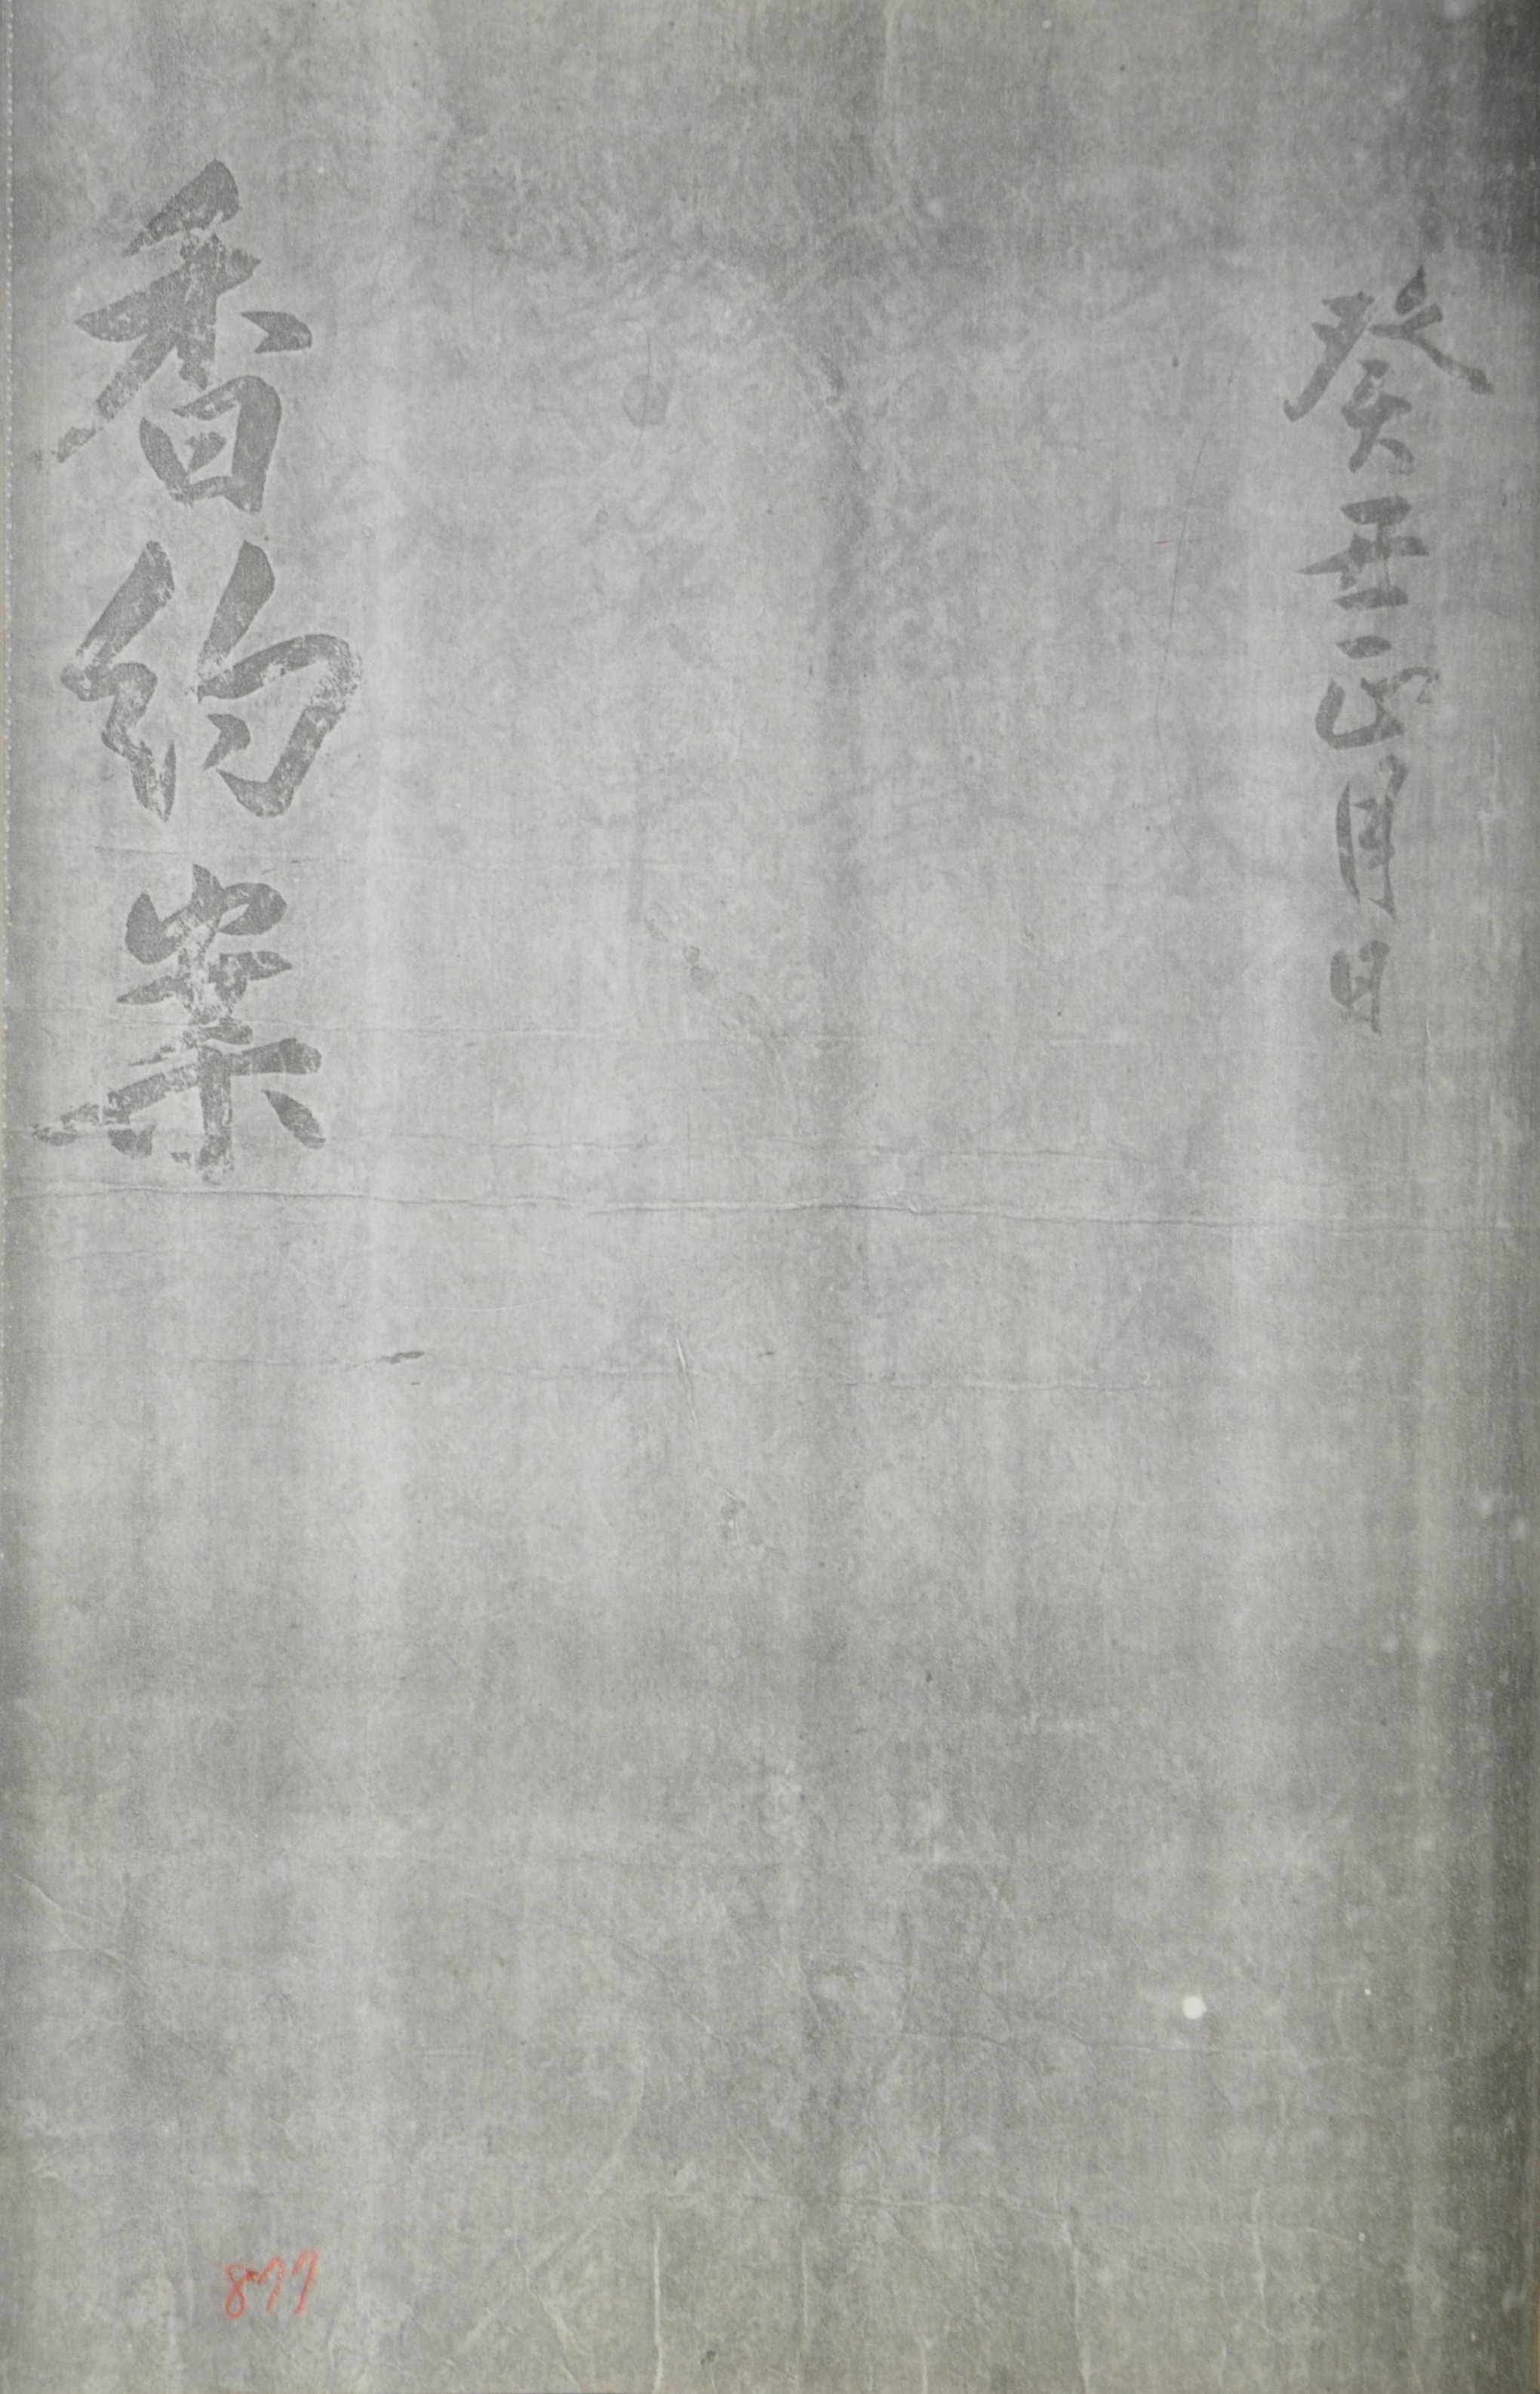 癸丑正月日
香約案
877